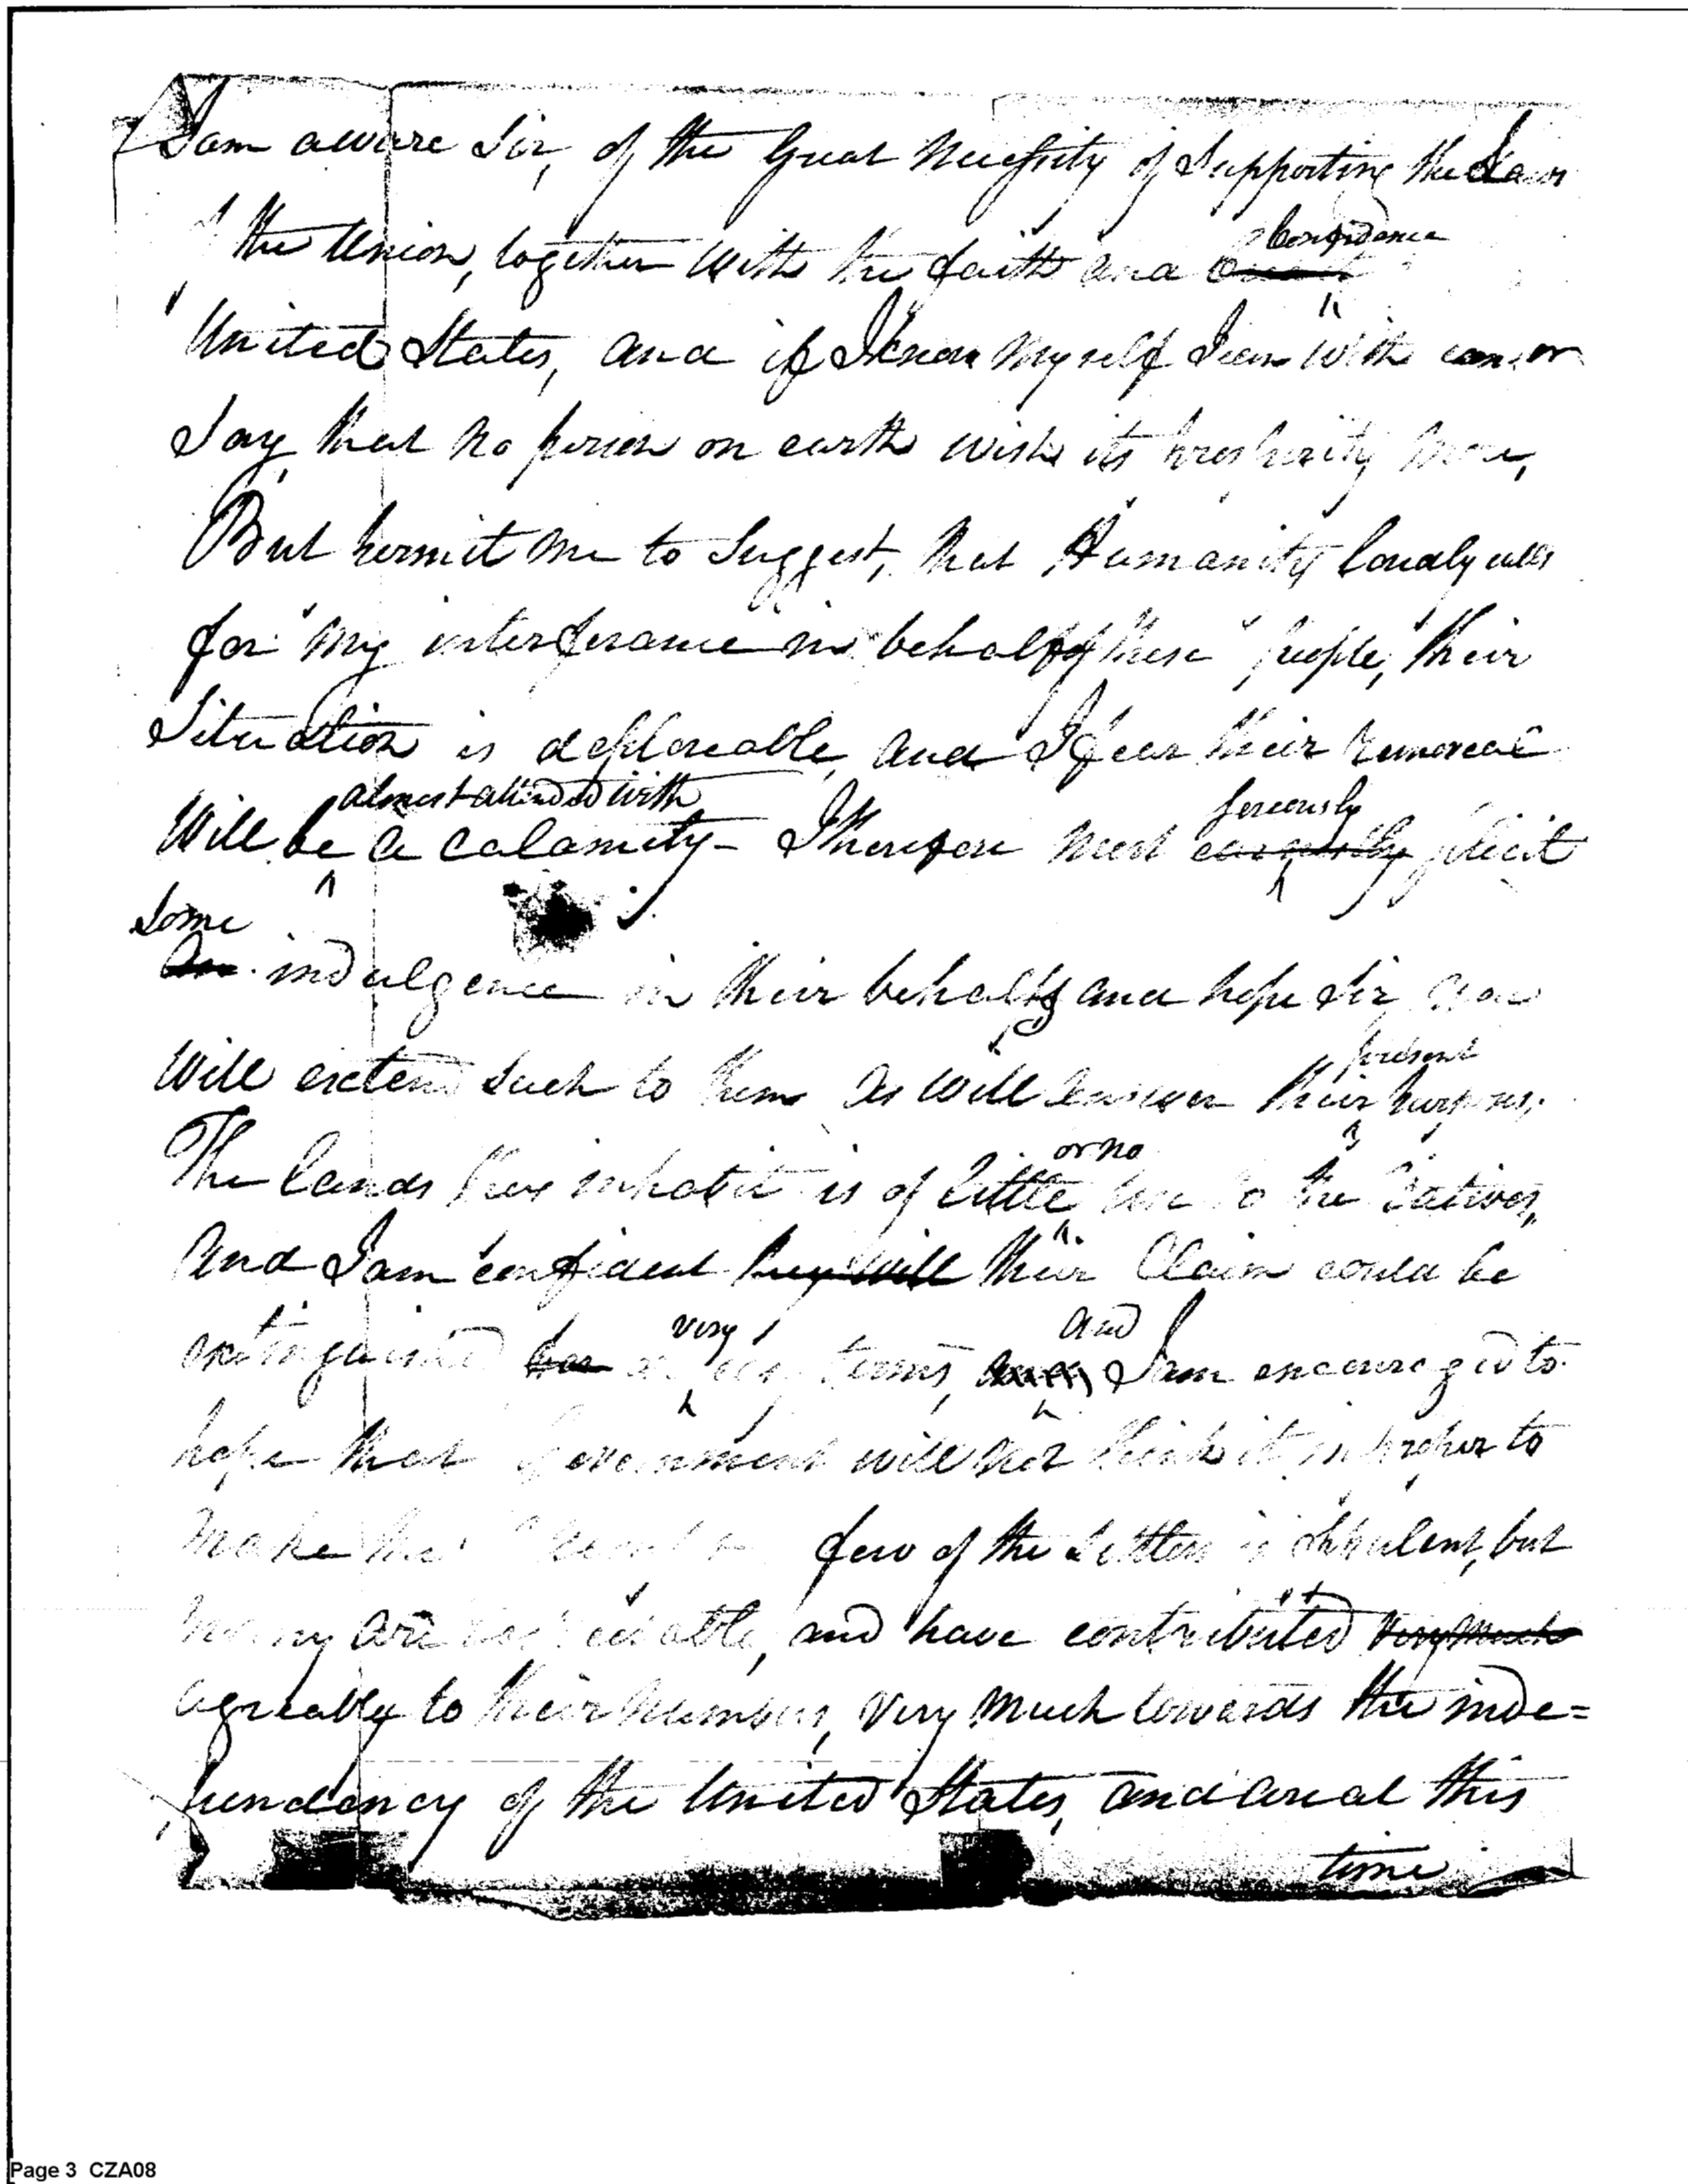 I am aware Sir, of the Great Necessity of Supporting the Laws
of the Union, together with the faith and
Confidence
United States, and if I know myself I can with candor
Say, that no person on earth wish its prosperity more,
But permit me to Suggest, that Humanity loudly calls
for my interferance in behalf of these people, their
Situation is deploreable, and I fear their removeal
almost attended with
seriously
Will be a calamity - I therefore must earnestly solicit
some
an indulgence in their behalf, and hope Sir, you
present
Will extend such to them as will answer their purposes.
or no
The lands they inhabit is of little use to the Natives,
And I am confident they will their Claim could be
very
and
extinguished for easy terms, I am encouraged to
hope that Government will not think it improper to
make the few of the Settlers is oppulent, but
many are and have contributed very much
agreeably to their numbers, very much towards the inde=
pendency of the United States, and are at this
time
Page 3 CZA08